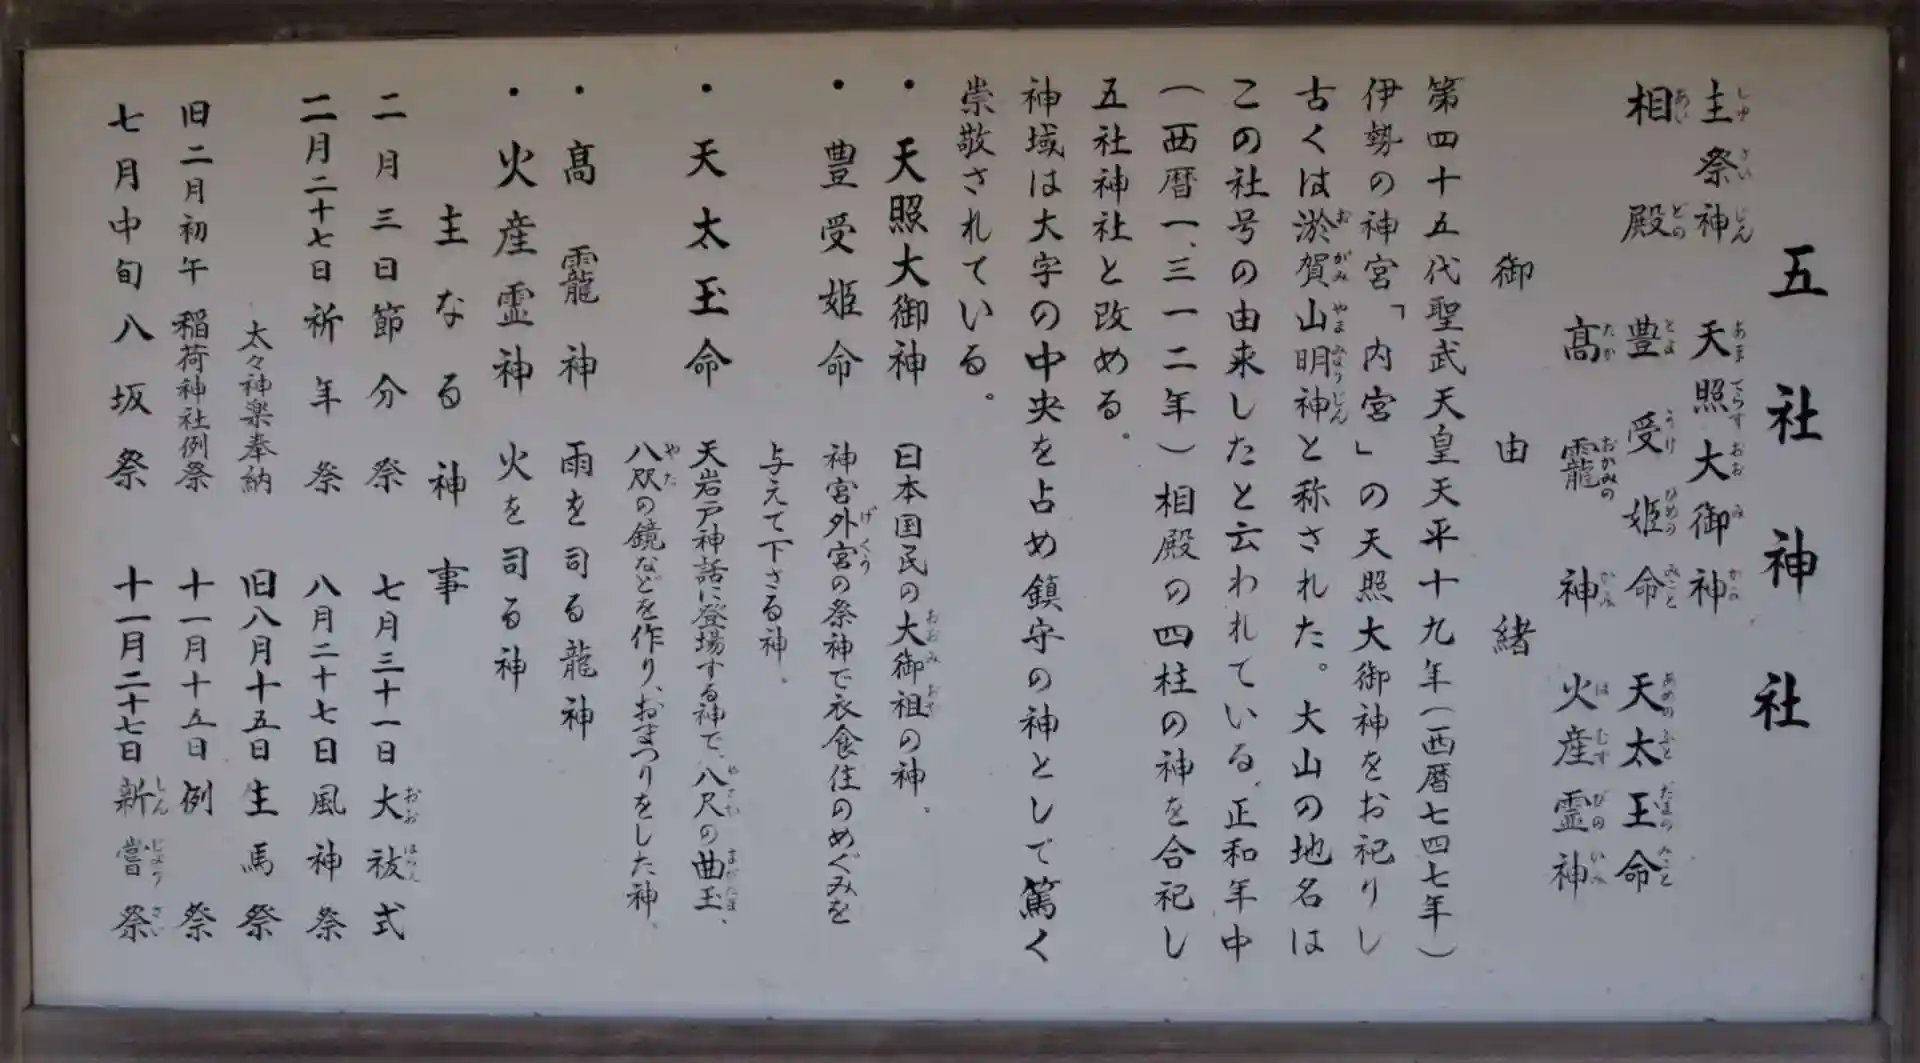 五社神社
主祭神 天照大御神
相殿 豊受姫命 天太王命
高龗神 火産霊神
御由緒
第四十五代聖武天皇天平十九年(西暦七四七年)
伊勢の神宮「内宮」の天照大御神をお祀りし
古くは淤賀山明神と称された。大山の地名は
この社号の由来したと云われている。正和年中
(西暦一、三一二年)相殿の四柱の神を合祀し
五社神社と改める。
神域は大字の中央を占め鎮守の神として篤く
崇敬されている。
・天照大御神 日本国民の大御祖の神。
・豊受姫命 神宮外宮の祭神で衣食住のめぐみを
与えて下さる神。
・天太玉命 天岩戸神話に登場する神で、八尺の曲玉、
八咫の鏡などを作り、おまつりをした神、
・高龗神 雨を司る龍神
・火産霊神 火を司る神
主なる神事
二月三日節分祭 七月三十一日大祓式
二月二十七日祈年祭 八月二十七日風神祭
太々神楽奉納 旧八月十五日生馬祭
旧二月初午 稲荷神社例祭 十一月十五日例祭
七月中旬八坂祭 十一月二十七日新嘗祭